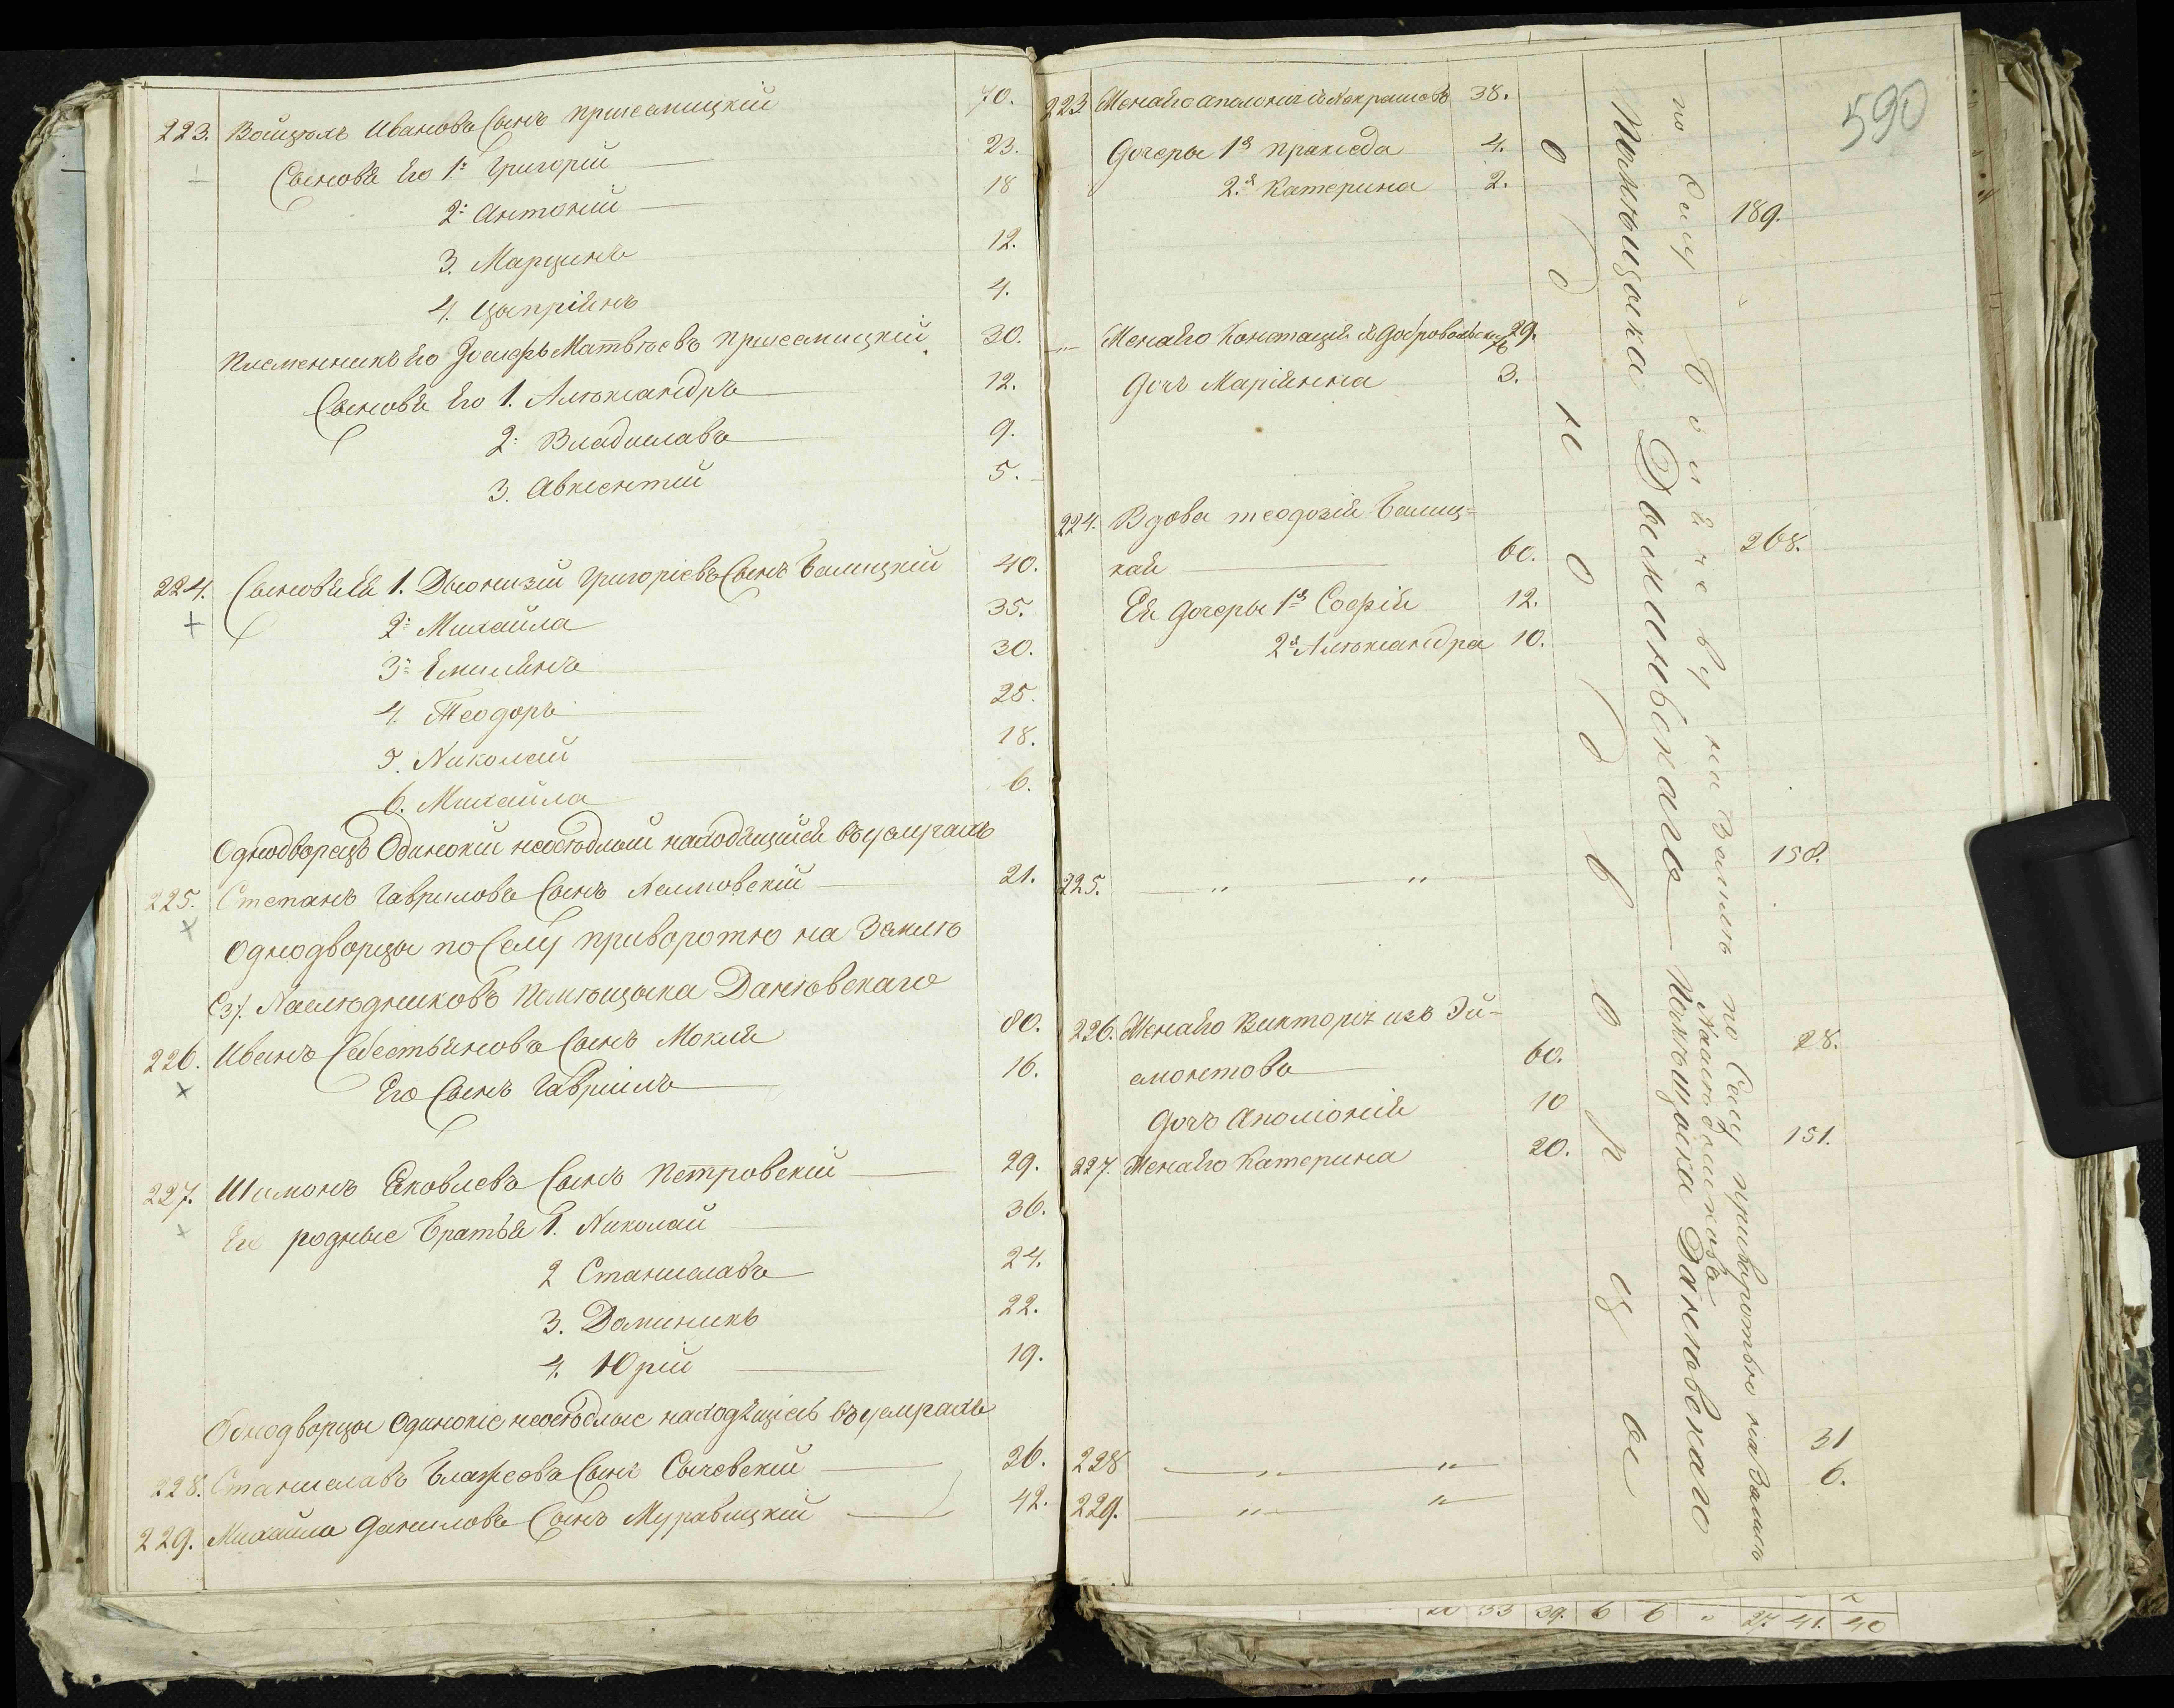 223. Войцехъ Ивановъ Сынъ Присемицкій 70.
Сыновья Его 1. Григорій 23.
2. Антоній 18
3. Марцинъ 12.
4. Цыпріянъ 4.
Племенникъ Его Іосифъ Матвѣевъ Присемицкій 30.
Сыновья Его 1. Александръ 12.
2. Владиславъ 9.
3. Авксентій 5.
224. Сыновья Ея 1. Діонизій Григоріевъ Сынъ Балицкій 40.
2. Михайла 35.
3. Емилянъ 30.
4. Теодоръ 25.
5. Николай 18.
6. Михайла 6.
Однодворецъ Одинокій неосѣдлый находящійся въ услугахъ
225. Степанъ Гавриловъ Сынъ 21.
Однодворцы по Селу Приворотю на Землѣ
Наслѣдниковъ Помѣщика Данковскаго
226. Иванъ Себестьяновъ Сынъ 80.
Его Сынъ Гавріилъ 16.
227. Шимонъ Яковлевъ Сынъ Петровскій 29.
Его родные Братья 1. Николай 36.
2 Станиславъ 24.
3. Доминикъ 22.
4. Юрій 19.
Однодворцы Одинокіе неосѣдлые находящіесь въ услугахъ
228. Станиславъ Блажеевъ Сынъ Сычевскій 26.
229. Михайло Даниловъ Сынъ Муравицкій 42.
590
223 Жена его Аполонія 38.
Дочеры 1я Пракседа 4.
2я Катерина 2.
189.
Жена Его Констанція 29.
Дочь Маріянна 3.
224. Вдова Теодозія Балиц-
кая 60.
268.
Ея Дочеры 1я Софія 12.
2я Александра 10.
225. 158.
226. Жена Его Викторія изъ
60.
28.
Дочь Аполонія 10
227. Жена Его Катерина 20.
151.
228 31
229. 6.
Однодворцы
по Селу
на Землѣ
Помѣщика
по Селу Приворотью на Землѣ
Наслѣдниковъ
Помѣщика Данковскаго
33 39. 6 6 27 41. 40